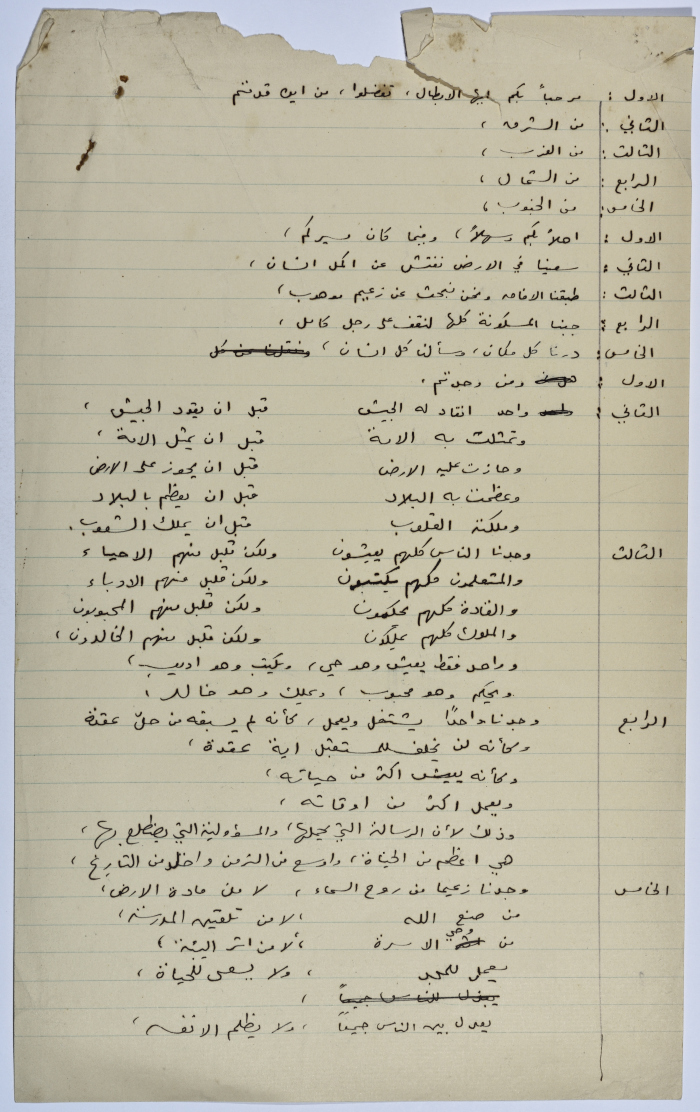 الاول : مرحباً بكم ايها الابطال، تفضلوا، من اين قدمتم
الثاني : من الشرق ،
الثالث : من الغرب ،
الرابع : من الشمال ،
الخامس: من الجنوب ،
الاول : اهلاً بكم وسهلاً، وفيما كان مسيركم ،
الثاني : سعينا في الارض نفتش عن اكمل انسان ،
الثالث : طبقنا الافاق ونحن نبحث عن زعيم موهوب ،
الرابع : جبنا المسكونة كلها لنقف على رجل كامل ،
الخامس: درنا كل مكان، وسألنا كل انسان ،
الاول : ومن وجدتم ،
الثاني : واحد انقاد له الجيش قبل ان يقود الجيش ،
وتمثلت به الامة قبل ان يمثل الامة ،
وحازت عليه الارض قبل ان يحوز على الارض
وعظمت به البلاد قبل ان يعظم بالبلاد
وملكته القلوب قبل ان يملك الشعوب .
الثالث وجدنا الناس كلهم يعيشون ولكن قليل منهم الاحياء
والمتعلمون كلهم يكتبون ولكن قليل منهم الادباء
والقادة كلهم يحكمون ولكن قليل منهم المحبوبون
والملوك كلهم يملكون ولكن قليل منهم الخالدون ،
وواحد فقط يعيش وهو حي ، ويكتب وهو اديب ،
ويحكم وهو محبوب ، ويملك وهو خالد ،
الرابع وجدنا واحدًا يشتغل ويعمل ، كأنه لم يسبقه من حلّ عقدة
وكأنه لن يخلف للمستقبل اية عقدة ،
وكأنه يعيش اكثر من حياته ،
ويعمل اكثر من اوقاته ،
وذلك لأن الرسالة التي يحملها، والمسؤولية التي يضطلع بها،
هي اعظم من الحياة ، واوسع من الزمن واخلد من التاريخ ،
الخامس وجدنا زعيما من روح السماء ، لا من مادة الارض ،
من صنع الله ، لا من تلقين المدرسة ،
من وحي الاسرة ، لا من اثر البيئة ،
يعمل للمجد ، ولا يسعى للحياة ،
يعدل بين الناس جميعاً ، ولا يظلم الا نفسه ،